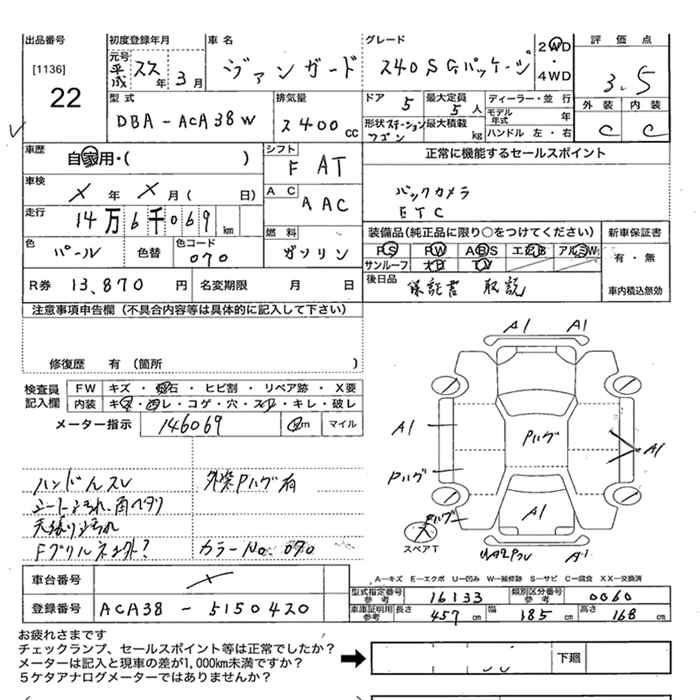 出品番号 初度登録年月 車名 グレード 2WD・4WD 評価点
[1136] 22
元号 平成 22年 3月
ヴァンガード
240S Gパッケージ
3.5
外装 内装
C C
型式 排気量 ドア 5 最大定員 5人 ディーラー・並行
DBA-ACA38W 2400cc
形状 ステーションワゴン 最大積載 kg モデル年式 年
ハンドル 左・右
車歴 シフト 正常に機能するセールスポイント
自家用・( ) F AT
車検 AC バックカメラ
× 年 × 月( 日) AAC ETC
走行 14万6千069km
燃料 装備品(純正品に限り○をつけてください) 新車保証書
色 パール 色替 色コード 070 ガソリン PS PW ABS エアB アルミW 有・無
サンルーフ TV
R券 13,870円 名変期限 月 日 後日品 保証書 取説 車内積込無効
注意事項申告欄(不具合内容等は具体的に記入して下さい)
修復歴 有(箇所 )
検査員記入欄 FW キズ・飛石・ヒビ割・リペア跡・X要
内装 キズ・ヨゴレ・コゲ・穴・スレ・キレ・破レ
メーター指示 146069 km マイル
ハンドルスレ 外装Pハゲ有
シートよごれ、
天張りよごれ
カラーNo. 070
A1 A1
A1 Pハゲ A1
Pハゲ
Pハゲ A1
スペアT A1
A―キズ E―エクボ U―凹み W―補修跡 S―サビ C―腐食 XX―交換済
車台番号
登録番号 ACA38 - 5150420
型式指定番号 参考 16133 類別区分番号 参考 0060
車庫証明用 参考 長さ 457cm 幅 185cm 高さ 168cm
お疲れさまです
チェックランプ、セールスポイント等は正常でしたか?
メーターは記入と現車の差が1,000km未満ですか?
5ケタアナログメーターではありませんか?
下廻